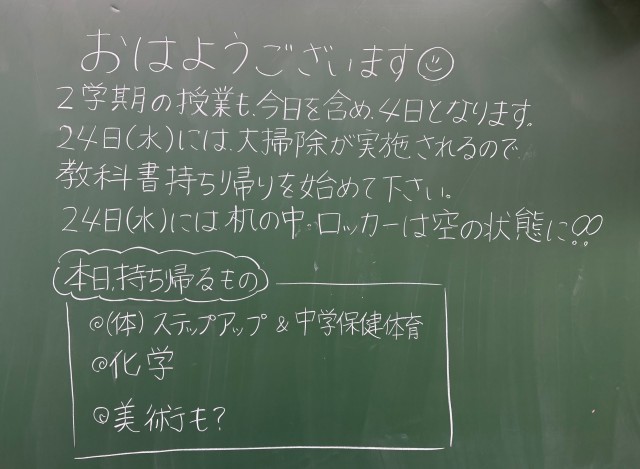 おはようございます☺
2学期の授業も、今日を含め、4日となります。
24日(水)には、大掃除が実施されるので
教科書持ち帰りを始めて下さい。
24日(水)には机の中・ロッカーは空の状態に!!
本日、持ち帰るもの
◎(体)ステップアップ&中学保健体育
◎化学
◎美術も?